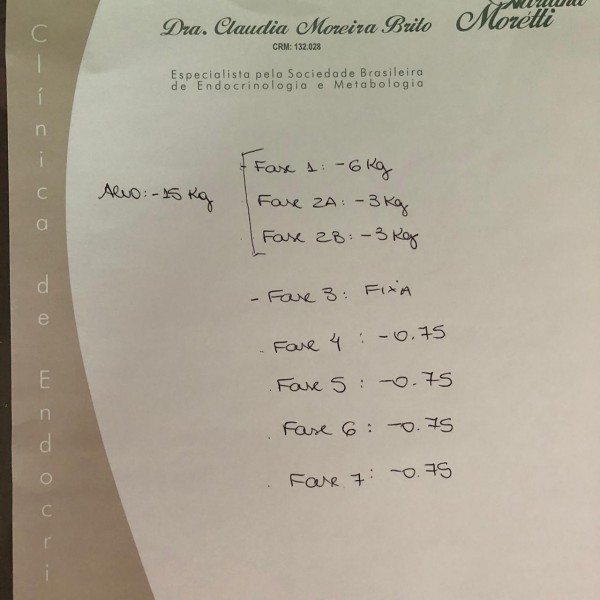 Dra. Claudia Moreira Brilo
Morétti
CRM: 132.028
Especialista pela Sociedade Brasileira
de Endocrinologia e Metabologia
Clínica de Endocri
Alvo: -15 Kg
- Fase 1: -6 Kg
Fase 2A: -3 Kg
Fase 2B: -3 Kg
- Fase 3: FIXA
. Fase 4 : -0.75
. Fase 5 : -0.75
. Fase 6 : -0.75
. Fase 7 : -0.75